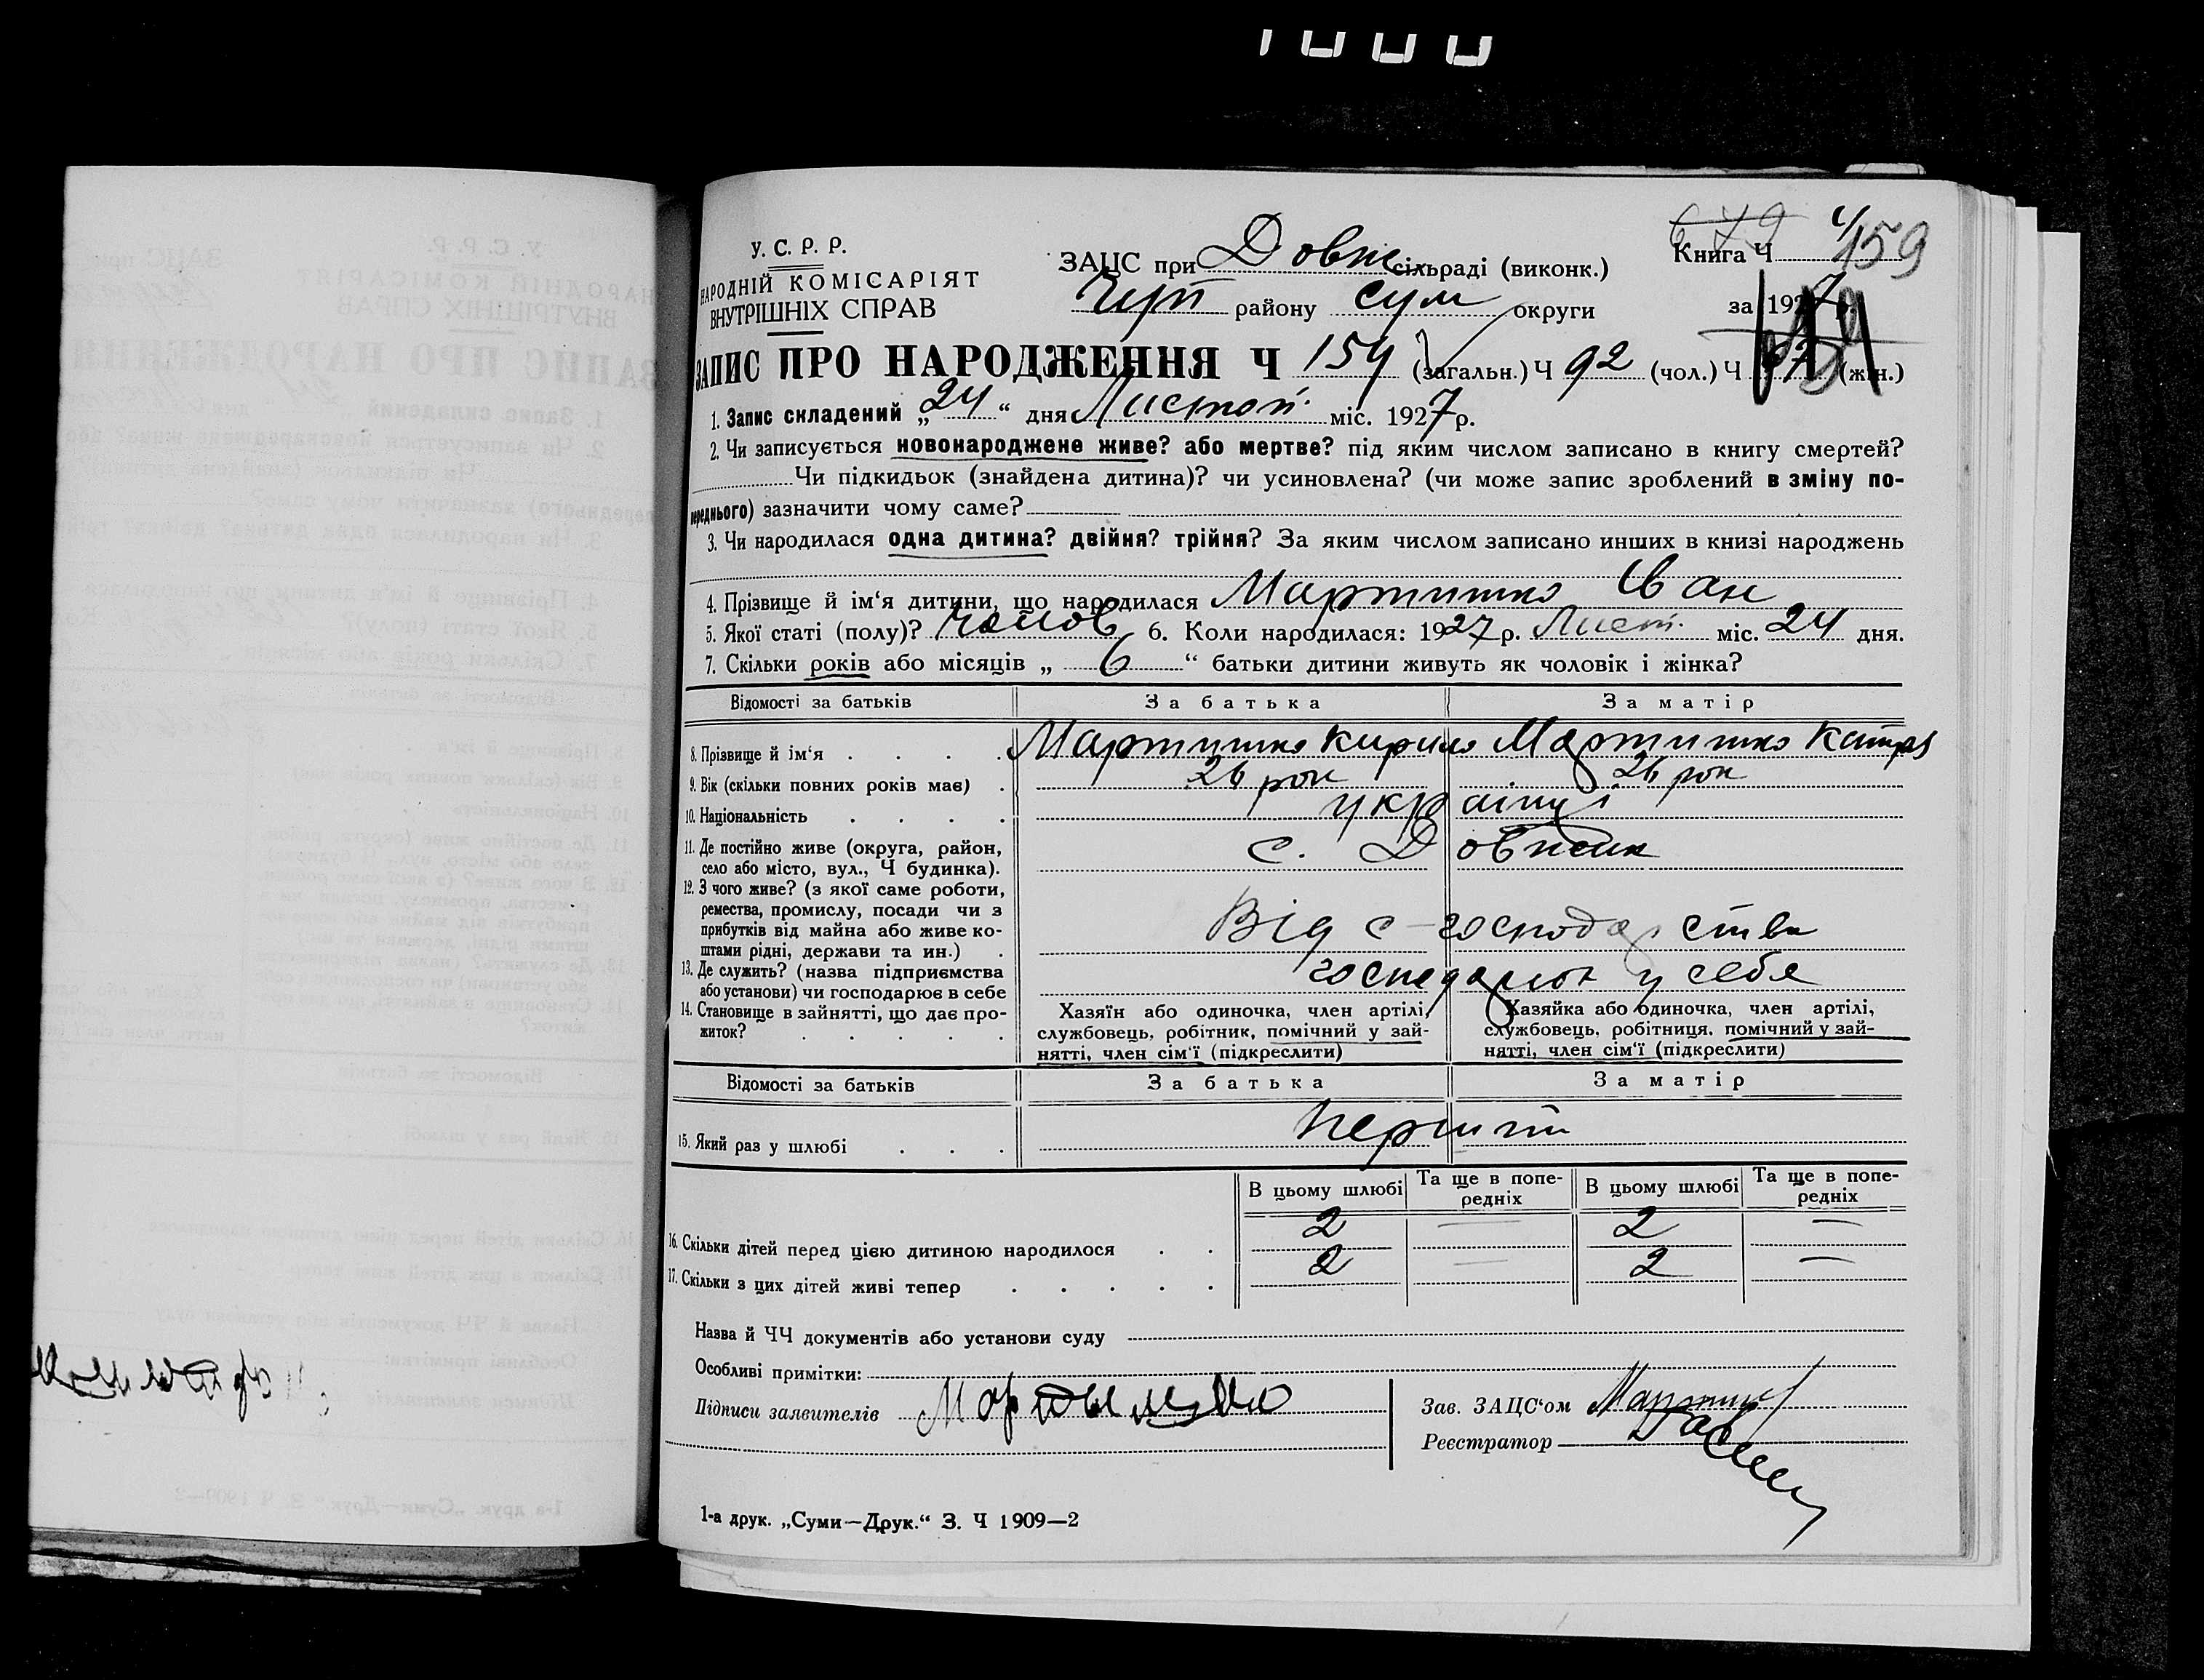 У. С. Р. Р.
НАРОДНІЙ КОМІСАРІЯТ
ВНУТРІШНІХ СПРАВ
ЗАЦС при Довж сільраді (виконк.)
району Сум округи
Книга Ч 159
за 1927 р.
ЗАПИС ПРО НАРОДЖЕННЯ Ч 159 (загальн.) Ч 92 (чол.) Ч 67 (жін.)
1. Запис складений „24“ дня Листоп. міс. 1927 р.
2. Чи записується новонароджене живе? або мертве? під яким числом записано в книгу смертей?
Чи підкидьок (знайдена дитина)? чи усиновлена? (чи може запис зроблений в зміну по-
переднього) зазначити чому саме?
3. Чи народилася одна дитина? двійня? трійня? За яким числом записано инших в книзі народжень
4. Прізвище й ім‘я дитини, що народилася Мартишко Іван
5. Якої статі (полу)? чолов 6. Коли народилася: 1927 р. Лист. міс. 24 дня.
7. Скільки років або місяців „ 6 “ батьки дитини живуть як чоловік і жінка?
Відомості за батьків За батька За матір
8. Прізвище й ім‘я . . . . Мартишко Кирило Мартишко Катря
9. Вік (скільки повних років має) . 26 рок 26 рок
10. Національність . . . . українці
11. Де постійно живе (округа, район,
село або місто, вул., Ч будинка). с. Довжик
12. З чого живе? (з якої саме роботи,
ремества, промислу, посади чи з
прибутків від майна або живе ко-
штами рідні, держави та ин.) . Від с-господарства
13. Де служить? (назва підприємства
або установи) чи господарює в себе господарює у себе
14. Становище в зайнятті, що дає про-
житок? . . . . .
Хазяїн або одиночка, член артілі,
службовець, робітник, помічний у зай-
нятті, член сім‘ї (підкреслити)
Хазяйка або одиночка, член артілі,
службовець, робітниця, помічний у зай-
нятті, член сім‘ї (підкреслити)
Відомості за батьків За батька За матір
15. Який раз у шлюбі . . . перший
В цьому шлюбі Та ще в попе-
редніх В цьому шлюбі Та ще в попе-
редніх
16. Скільки дітей перед цією дитиною народилося . . 2 — 2 —
17. Скільки з цих дітей живі тепер . . . . . 2 — 2 —
Назва й ЧЧ документів або установи суду
Особливі примітки:
Підписи заявителів
Зав. ЗАЦС‘ом
Реєстратор
1-а друк. „Суми—Друк.“ З. Ч 1909—2